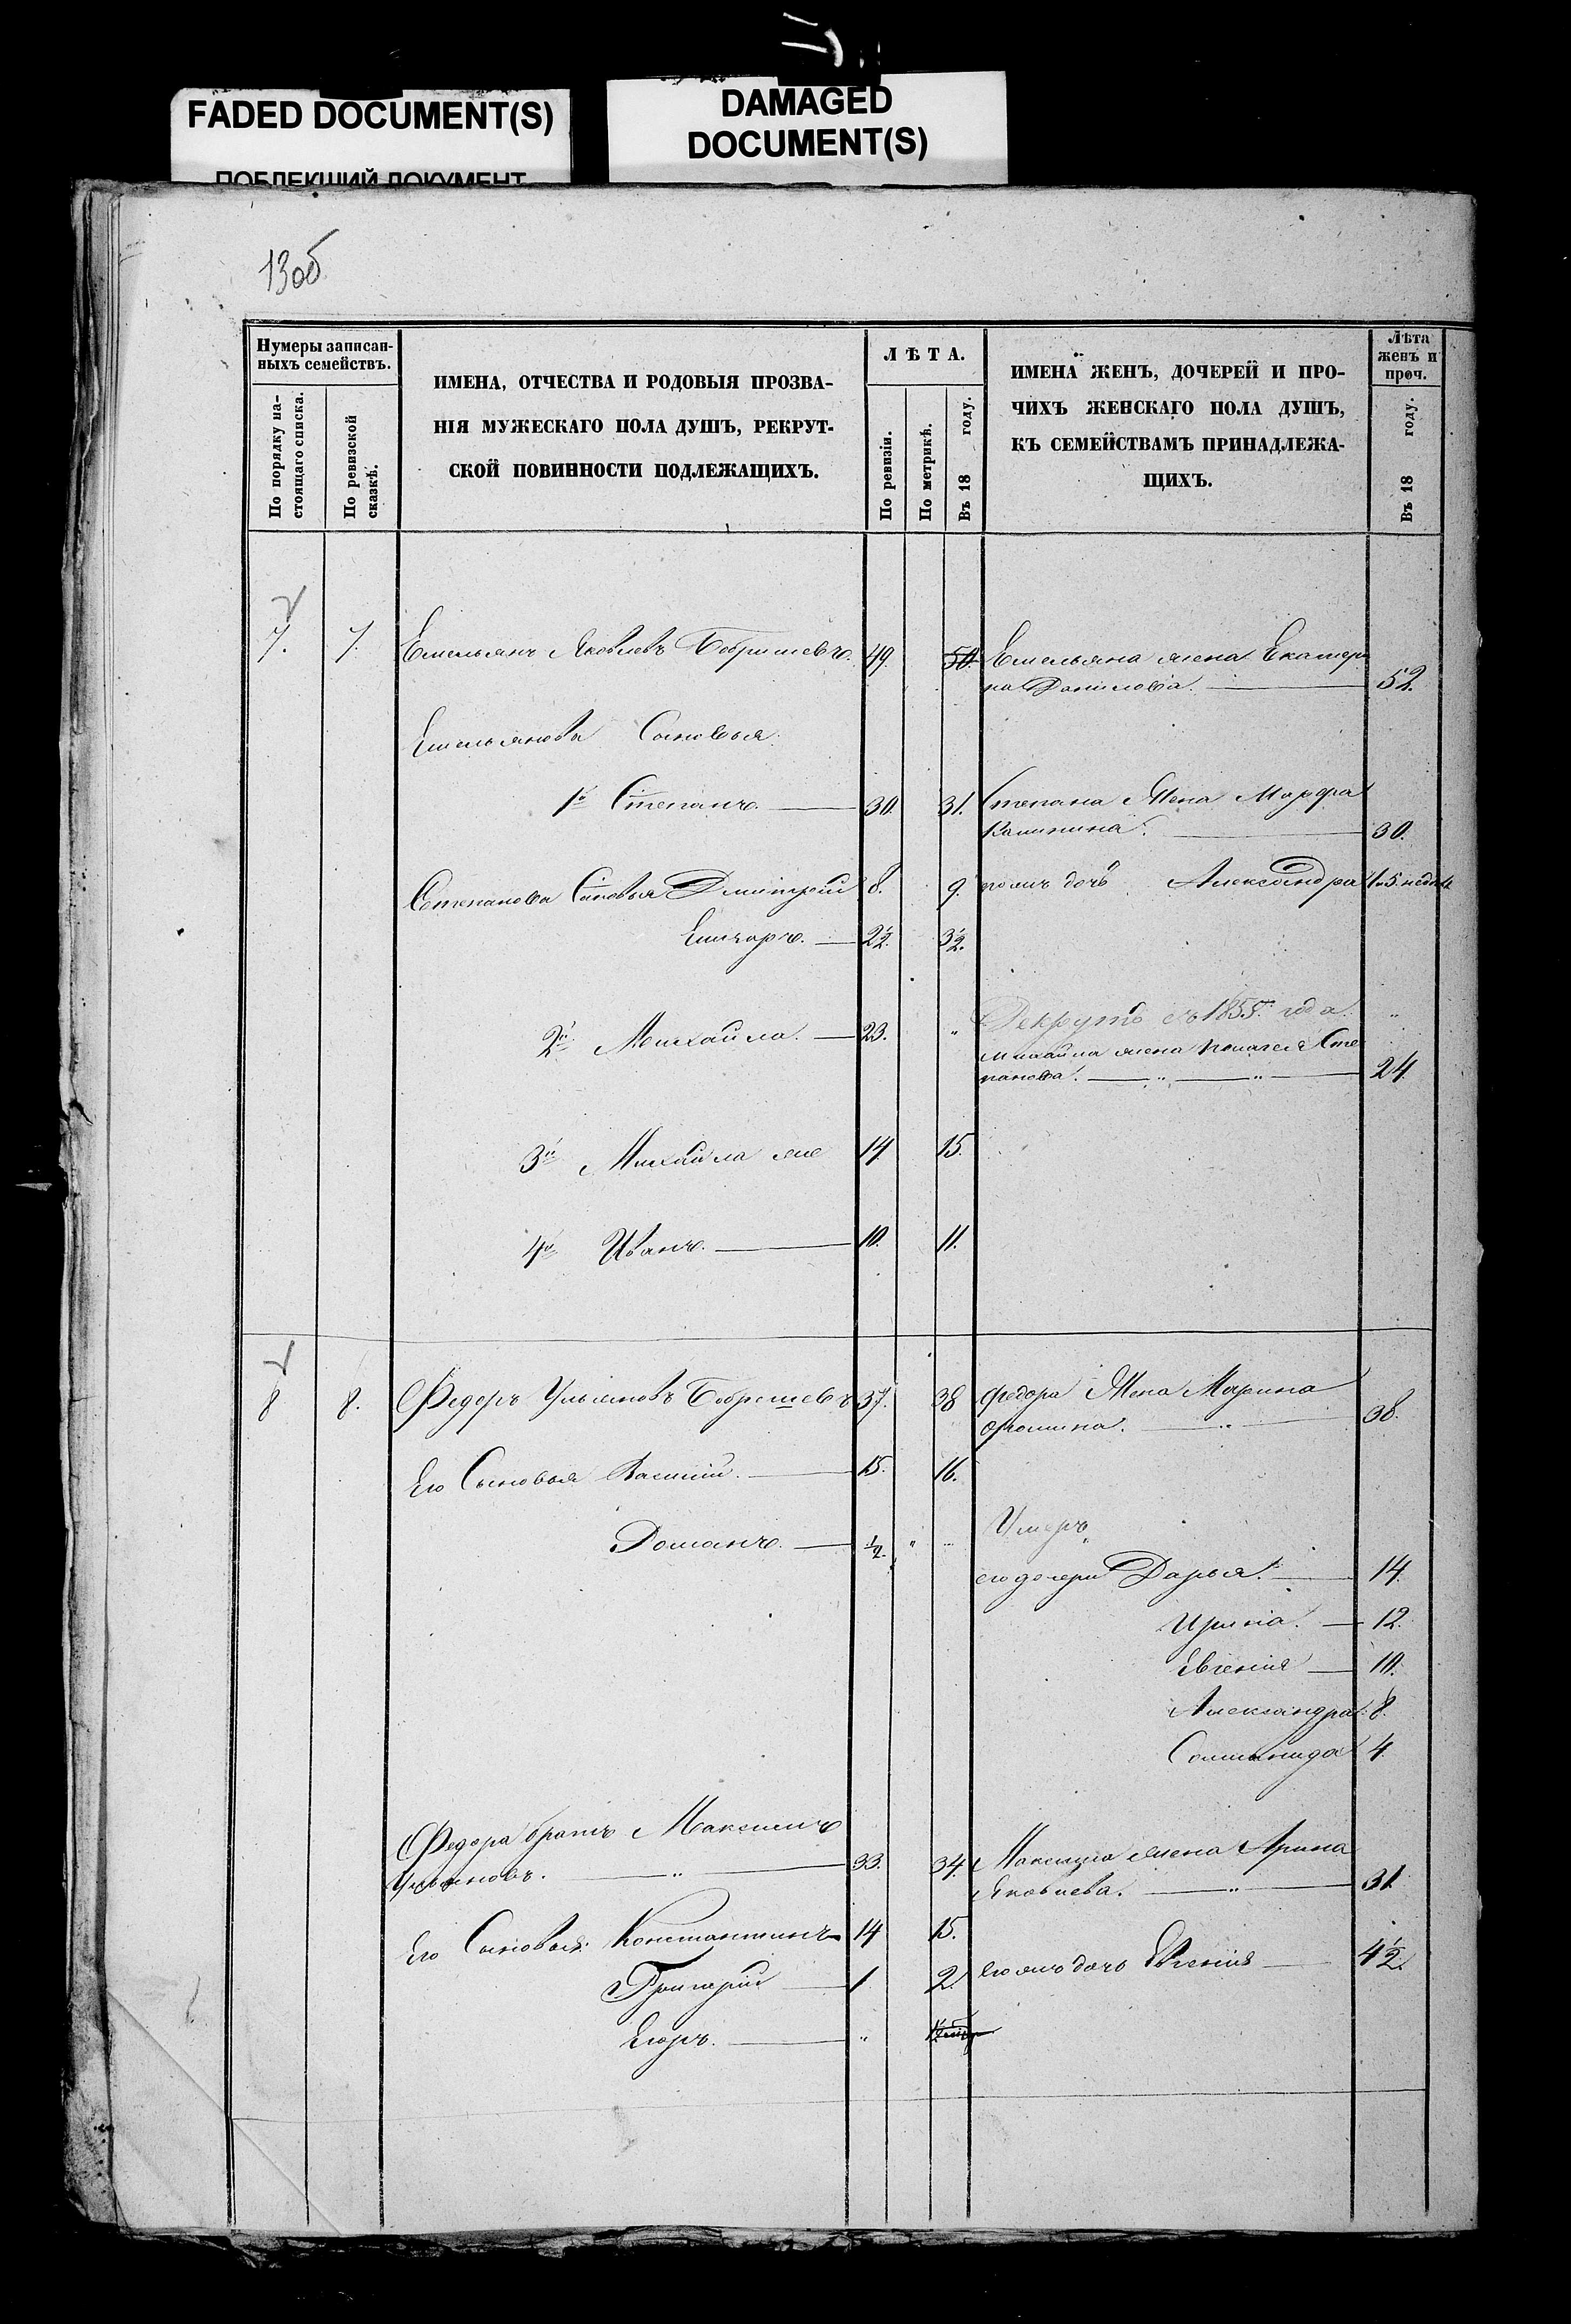 FADED DOCUMENT(S)
ПОБЛЕКШИЙ ДОКУМЕНТ
DAMAGED
DOCUMENT(S)
13об
Нумеры записан-
ныхъ семействъ.
По порядку на-
стоящаго списка.
По ревизской
сказкѣ.
ИМЕНА, ОТЧЕСТВА И РОДОВЫЯ ПРОЗВА-
НІЯ МУЖЕСКАГО ПОЛА ДУШЪ, РЕКРУТ-
СКОЙ ПОВИННОСТИ ПОДЛЕЖАЩИХЪ.
ЛѢТА.
По ревизіи.
По метрикѣ.
Въ 18 году.
ИМЕНА ЖЕНЪ, ДОЧЕРЕЙ И ПРО-
ЧИХЪ ЖЕНСКАГО ПОЛА ДУШЪ,
КЪ СЕМЕЙСТВАМЪ ПРИНАДЛЕЖА-
ЩИХЪ.
Лѣта
женъ и
проч.
Въ 18 году.
7. 7. Емельянъ Яковлевъ Бобришевъ. 49. 50. Емельяна жена Екатери
на Данилова. 52.
Емельяновы Сыновья:
1й Степанъ. 30. 31. Степана Жена Марфа
Калинина. 30.
Степанова Сыновья Дмитрей 8. 9. дочь Александра
2½. 3½.
2й Михайла. 23. " Рекрутъ съ 1855 года. "
Михайла жена Сте
панова. 24.
3й Михайла же 14 15.
4й Иванъ. 10. 11.
8 8. Федоръ Ульяновъ Бобришевъ 37. 38 Федора Жена Марина
Фомина. 38.
Его Сыновья Василий. 15. 16.
Романъ. ½. " Умеръ
его дочери Дарья. 14.
Ирина. 12.
Евгения 10.
Александра. 8.
Соломонида 4
Федора братъ Максимъ
Ульяновъ. " 33. 34. Максима жена Арина
Яковлева. " 31.
Его Сыновья: Константинъ 14 15.
Григорий 1 2. дочь Евгения 4½.
Егоръ. "